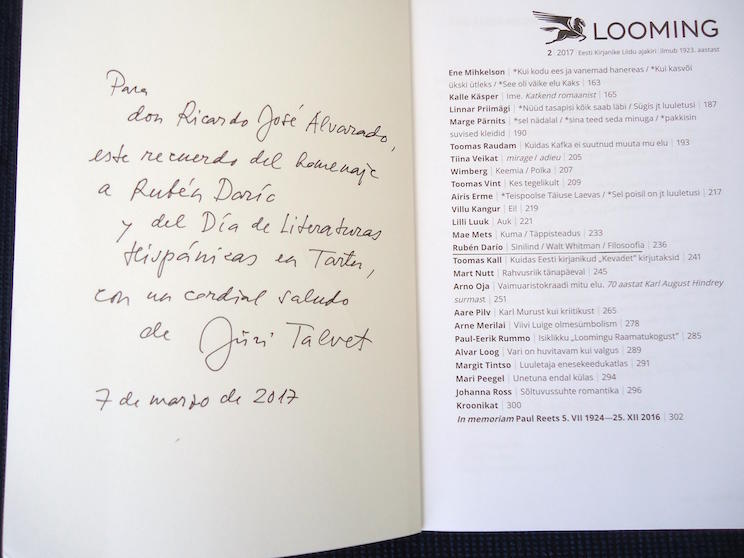 Para
don Ricardo José Alvarado,
este recuerdo del homenaje
a Rubén Darío
y del Día de Literaturas
Hispánicas en Tartu,
con un cordial saludo
de Jüri Talvet
7 de marzo de 2017
LOOMING
2 | 2017 | Eesti Kirjanike Liidu ajakiri | ilmub 1923. aastast
Ene Mihkelson | *Kui kodu ees ja vanemad hanereas / *Kui kasvõi
ükski ütleks / *See oli väike elu Kaks | 163
Kalle Käsper | Ime. Katkend romaanist | 165
Linnar Priimägi | *Nüüd tasapisi kõik saab läbi / Sügis jt luuletusi | 187
Marge Pärnits | *sel nädalal / *sina teed seda minuga / *pakkisin
suvised kleidid | 190
Toomas Raudam | Kuidas Kafka ei suutnud muuta mu elu | 193
Tiina Veikat | mirage / adieu | 205
Wimberg | Keemia / Polka | 207
Toomas Vint | Kes tegelikult | 209
Airis Erme | *Teispoolse Täiuse Laevas / *Sel poisil on jt luuletusi | 217
Villu Kangur | Ei! | 219
Lilli Luuk | Auk | 221
Mae Mets | Kuma / Täppisteadus | 233
Rubén Darío | Sinilind / Walt Whitman / Filosoofia | 236
Toomas Kall | Kuidas Eesti kirjanikud „Kevadet" kirjutaksid | 241
Mart Nutt | Rahvusriik tänapäeval | 245
Arno Oja | Vaimuaristokraadi mitu elu. 70 aastat Karl August Hindrey
surmast | 251
Aare Pilv | Karl Murust kui kriitikust | 265
Arne Merilai | Viivi Luige olmesümbolism | 278
Paul-Eerik Rummo | Isiklikku „Loomingu Raamatukogust" | 285
Alvar Loog | Vari on huvitavam kui valgus | 289
Margit Tintso | Luuletaja enesekeedukatlas | 291
Mari Peegel | Unetuna endal külas | 294
Johanna Ross | Sõltuvussuhte romantika | 296
Kroonikat | 300
In memoriam Paul Reets 5. VII 1924—25. XII 2016 | 302